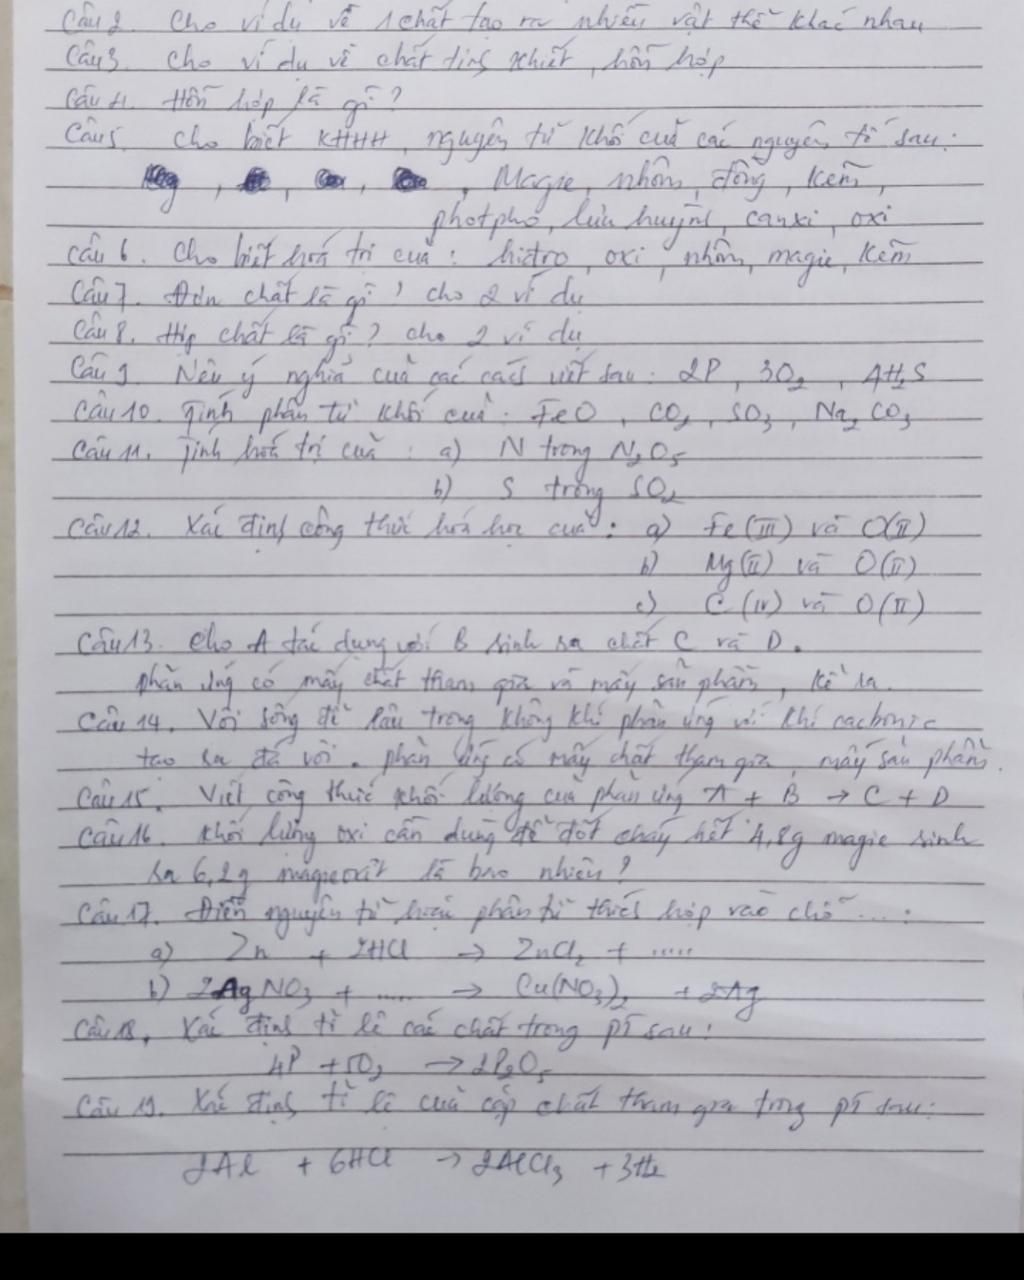 Câu 2. Cho ví dụ về 1 chất tạo ra nhiều vật thể khác nhau
Câu 3. Cho ví dụ về chất tinh khiết, hỗn hợp
Câu 4. Hỗn hợp là gì?
Câu 5. Cho biết KHHH, nguyên tử khối của các nguyên tố sau:
, , , , Magie, nhôm, đồng, kẽm,
photpho, lưu huỳnh, canxi, oxi
Câu 6. Cho biết hoá trị của: hiđro, oxi, nhôm, magie, kẽm
Câu 7. Đơn chất là gì? cho 2 ví dụ
Câu 8. Hợp chất là gì? cho 2 ví dụ
Câu 9. Nêu ý nghĩa của các cách viết sau: 2P, 3O2, 4H2S
Câu 10. Tính phân tử khối của: FeO, CO2, SO3, Na2CO3
Câu 11. Tính hoá trị của: a) N trong N2O5
b) S trong SO2
Câu 12. Xác định công thức hoá học của: a) Fe(III) và O(II)
b) Mg(II) và O(II)
c) C(IV) và O(II)
Câu 13. Cho A tác dụng với B sinh ra chất C và D.
phản ứng có mấy chất tham gia và mấy sản phẩm, kể ra.
Câu 14. Vôi sống để lâu trong không khí phản ứng với khí cacbonic
tạo ra đá vôi. phản ứng có mấy chất tham gia, mấy sản phẩm.
Câu 15. Viết công thức khối lượng của phản ứng A + B → C + D
Câu 16. Khối lượng oxi cần dùng để đốt cháy hết 4,8g magie sinh
ra 6,2g magieoxit là bao nhiêu?
Câu 17. Điền nguyên tử hoặc phân tử thích hợp vào chỗ ....:
a) Zn + 2HCl → ZnCl2 + .....
b) 2AgNO3 + ..... → Cu(NO3)2 + 2Ag
Câu 18. Xác định tỉ lệ các chất trong pt sau:
4P + 5O2 → 2P2O5
Câu 19. Xác định tỉ lệ của cặp chất tham gia trong pt sau:
2Al + 6HCl → 2AlCl3 + 3H2